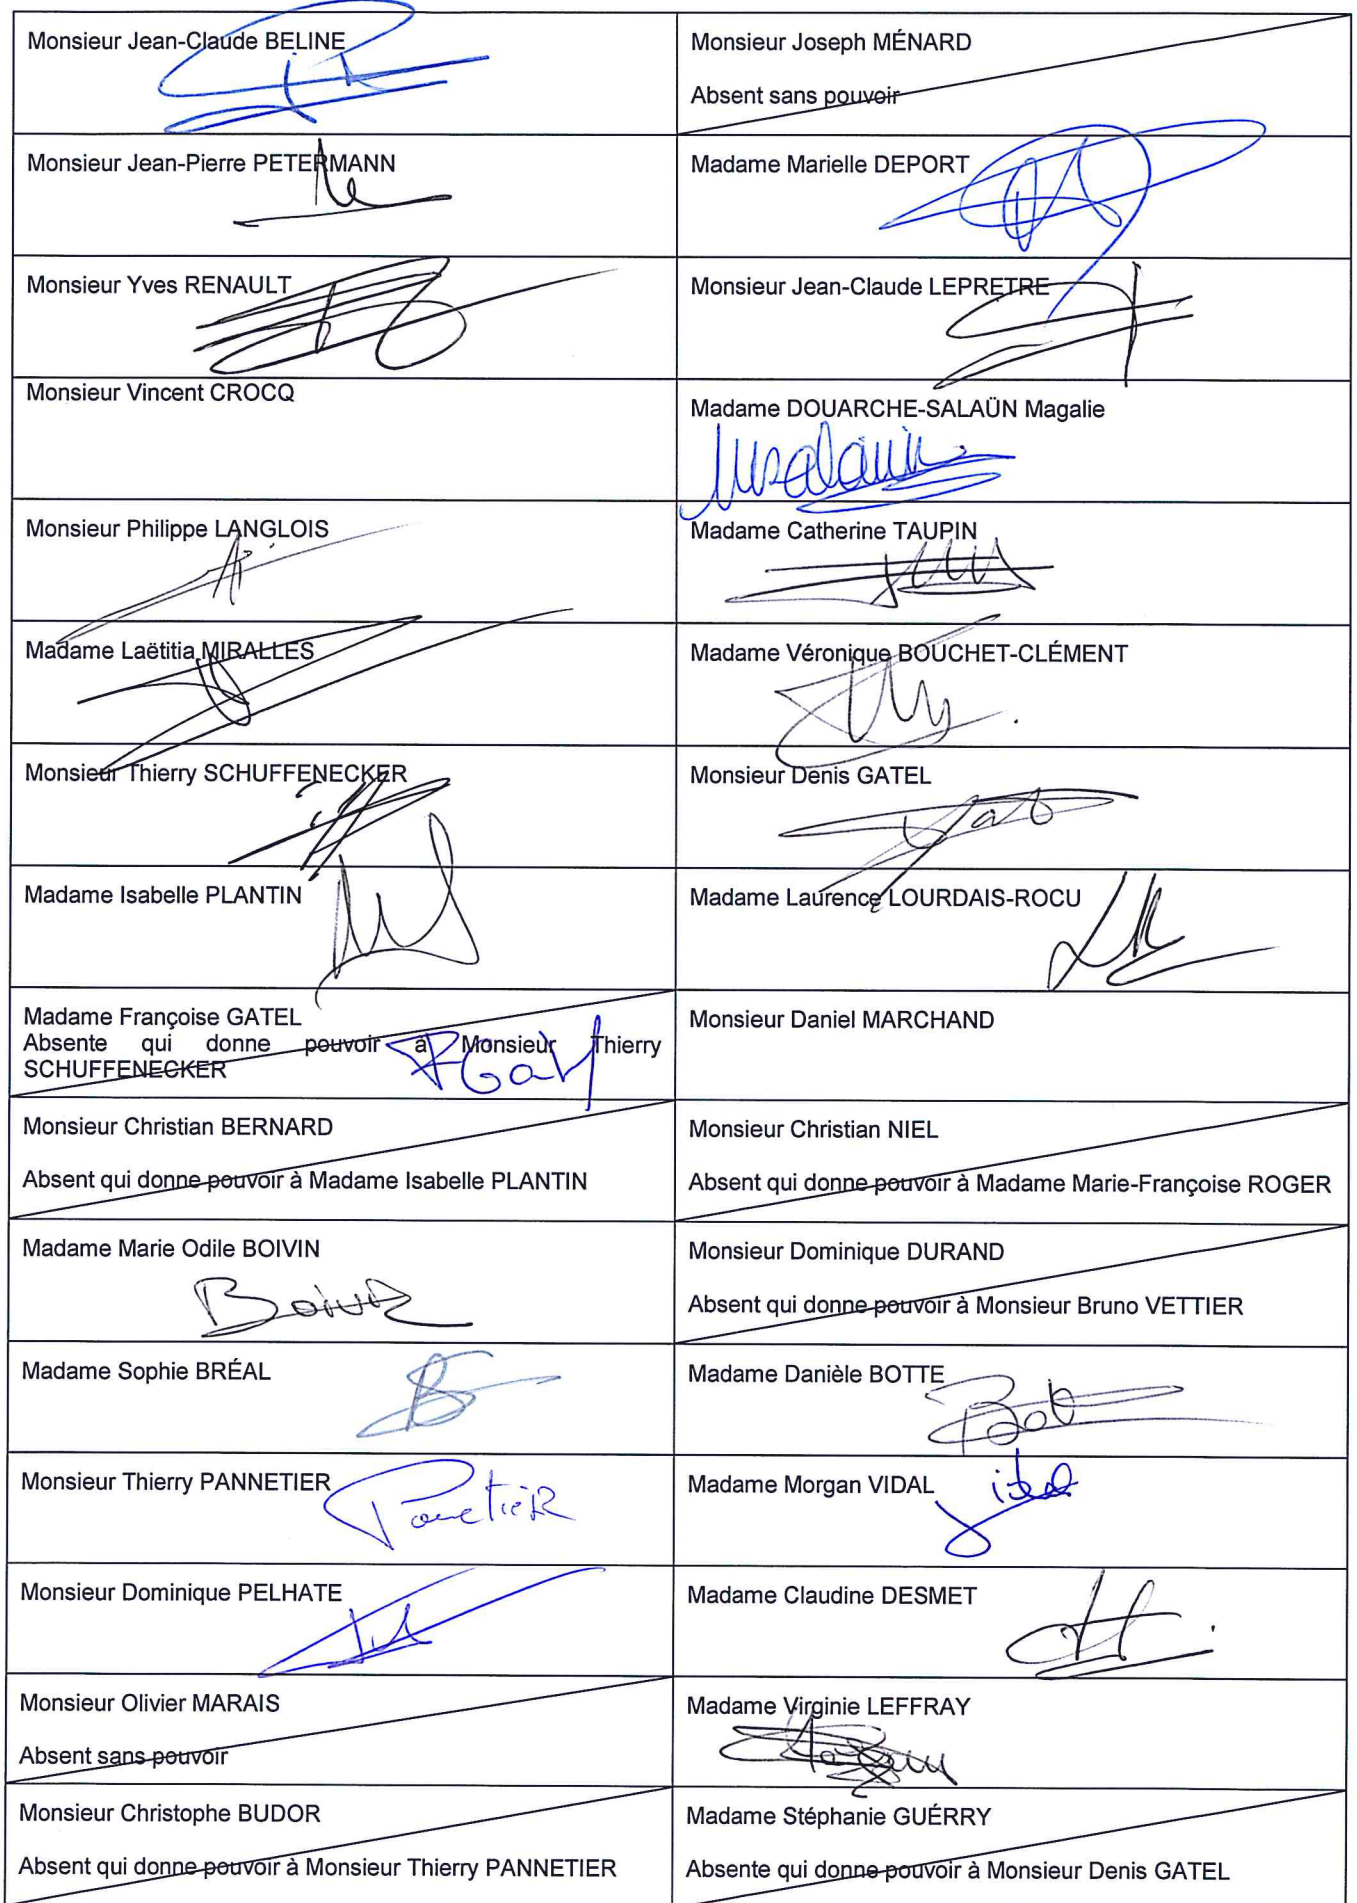 Monsieur Jean-Claude BELINE
Monsieur Joseph MÉNARD
Absent sans pouvoir
Monsieur Jean-Pierre PETERMANN
Madame Marielle DEPORT
Monsieur Yves RENAULT
Monsieur Jean-Claude LEPRETRE
Monsieur Vincent CROCQ
Madame DOUARCHE-SALAÜN Magalie
Monsieur Philippe LANGLOIS
Madame Catherine TAUPIN
Madame Laëtitia MIRALLES
Madame Véronique BOUCHET-CLÉMENT
Monsieur Thierry SCHUFFENECKER
Monsieur Denis GATEL
Madame Isabelle PLANTIN
Madame Laurence LOURDAIS-ROCU
Madame Françoise GATEL
Absente qui donne pouvoir à Monsieur Thierry
SCHUFFENECKER
Monsieur Daniel MARCHAND
Monsieur Christian BERNARD
Absent qui donne pouvoir à Madame Isabelle PLANTIN
Monsieur Christian NIEL
Absent qui donne pouvoir à Madame Marie-Françoise ROGER
Madame Marie Odile BOIVIN
Boivin
Monsieur Dominique DURAND
Absent qui donne pouvoir à Monsieur Bruno VETTIER
Madame Sophie BRÉAL
Madame Danièle BOTTE
Monsieur Thierry PANNETIER
Madame Morgan VIDAL
Monsieur Dominique PELHATE
Madame Claudine DESMET
Monsieur Olivier MARAIS
Absent sans pouvoir
Madame Virginie LEFFRAY
Monsieur Christophe BUDOR
Absent qui donne pouvoir à Monsieur Thierry PANNETIER
Madame Stéphanie GUÉRRY
Absente qui donne pouvoir à Monsieur Denis GATEL